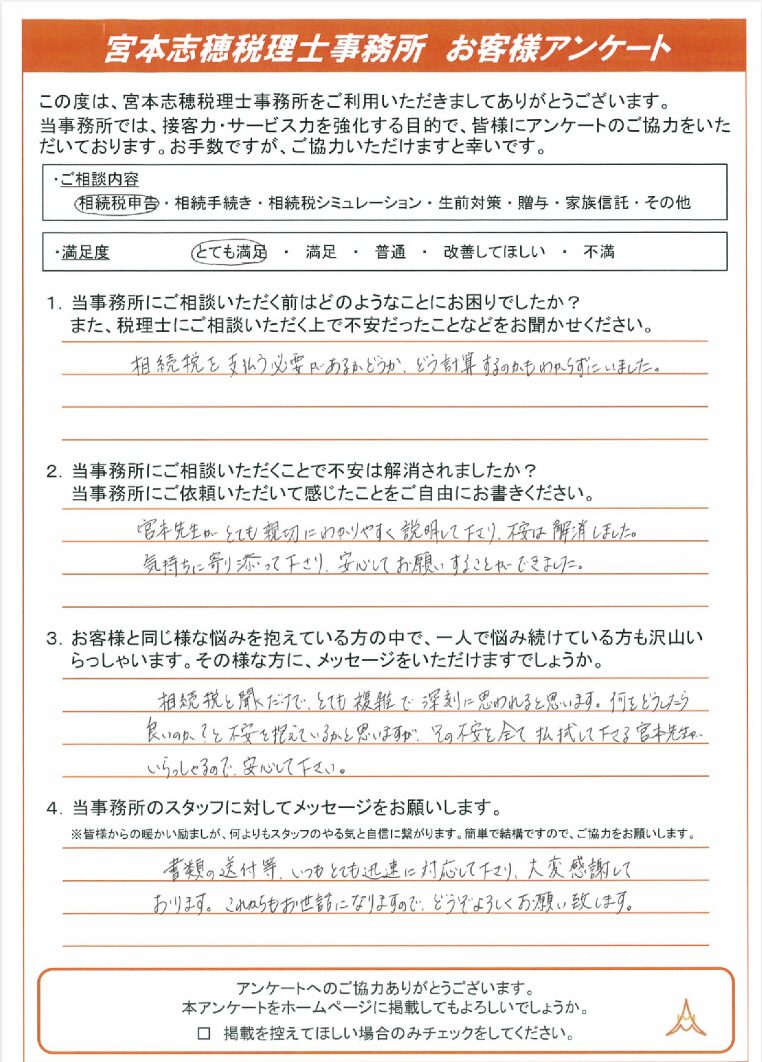 宮本志穂税理士事務所 お客様アンケート
この度は、宮本志穂税理士事務所をご利用いただきましてありがとうございます。
当事務所では、接客力・サービス力を強化する目的で、皆様にアンケートのご協力をいた
だいております。お手数ですが、ご協力いただけますと幸いです。
・ご相談内容
相続税申告・相続手続き・相続税シミュレーション・生前対策・贈与・家族信託・その他
・満足度 とても満足 ・ 満足 ・ 普通 ・ 改善してほしい ・ 不満
1. 当事務所にご相談いただく前はどのようなことにお困りでしたか？
また、税理士にご相談いただく上で不安だったことなどをお聞かせください。
相続税を支払う必要があるかどうか、どう計算するのかもわからずにいました。
2. 当事務所にご相談いただくことで不安は解消されましたか？
当事務所にご依頼いただいて感じたことをご自由にお書きください。
宮本先生がとても親切にわかりやすく説明して下さり、不安は解消しました。
気持ちに寄り添って下さり、安心してお願いすることができました。
3. お客様と同じ様な悩みを抱えている方の中で、一人で悩み続けている方も沢山い
らっしゃいます。その様な方に、メッセージをいただけますでしょうか。
相続税と聞くだけで、とても複雑で深刻に思われると思います。何をどうしたら
良いのか？と不安を抱えているかと思いますが、その不安を全て払拭して下さる宮本先生が
いらっしゃるので、安心して下さい。
4. 当事務所のスタッフに対してメッセージをお願いします。
※皆様からの暖かい励ましが、何よりもスタッフのやる気と自信に繋がります。簡単で結構ですので、ご協力をお願いします。
書類の送付等、いつもとても迅速に対応して下さり、大変感謝して
おります。これからもお世話になりますので、どうぞよろしくお願い致します。
アンケートへのご協力ありがとうございます。
本アンケートをホームページに掲載してもよろしいでしょうか。
□ 掲載を控えてほしい場合のみチェックをしてください。